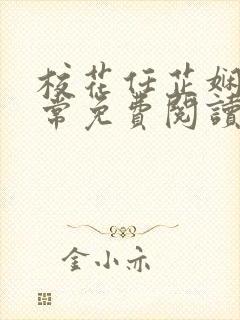 校花任芷娴
常免費閱讀
金小亦